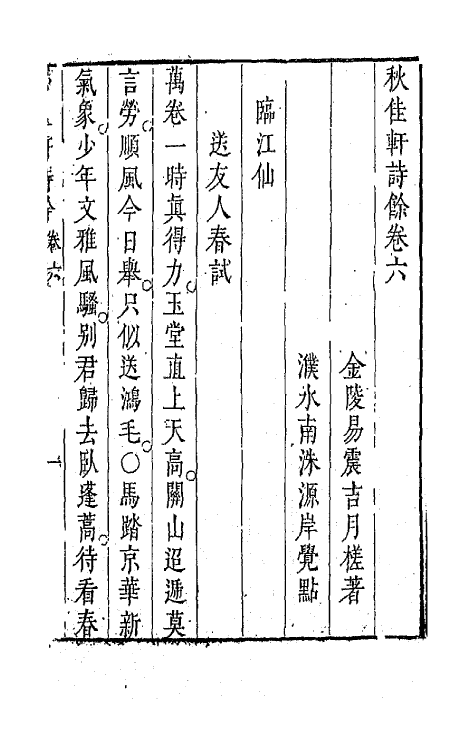 秋佳軒詩餘卷六
金陵易震吉月槎著
濮水南洙源岸覺點
臨江仙
送友人春試
萬卷一時眞得力玉堂直上天高關山迢遞莫
言勞順風今日舉只似送鴻毛〇馬踏京華新
氣象少年文雅風騷别君歸去臥蓬蒿待看春
卷六
一